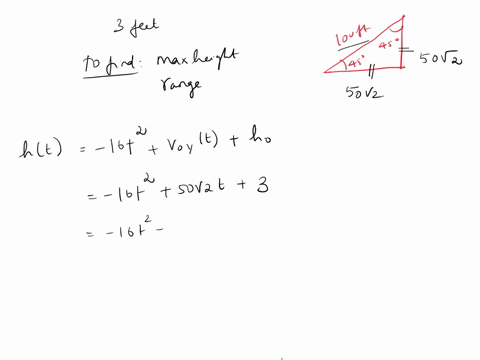 3 feet
to find: max height
range
100ft
45°
45°
50√2
50√2
h(t) = -16t² + v₀y(t) + h₀
= -16t² + 50√2t + 3
= -16t² -